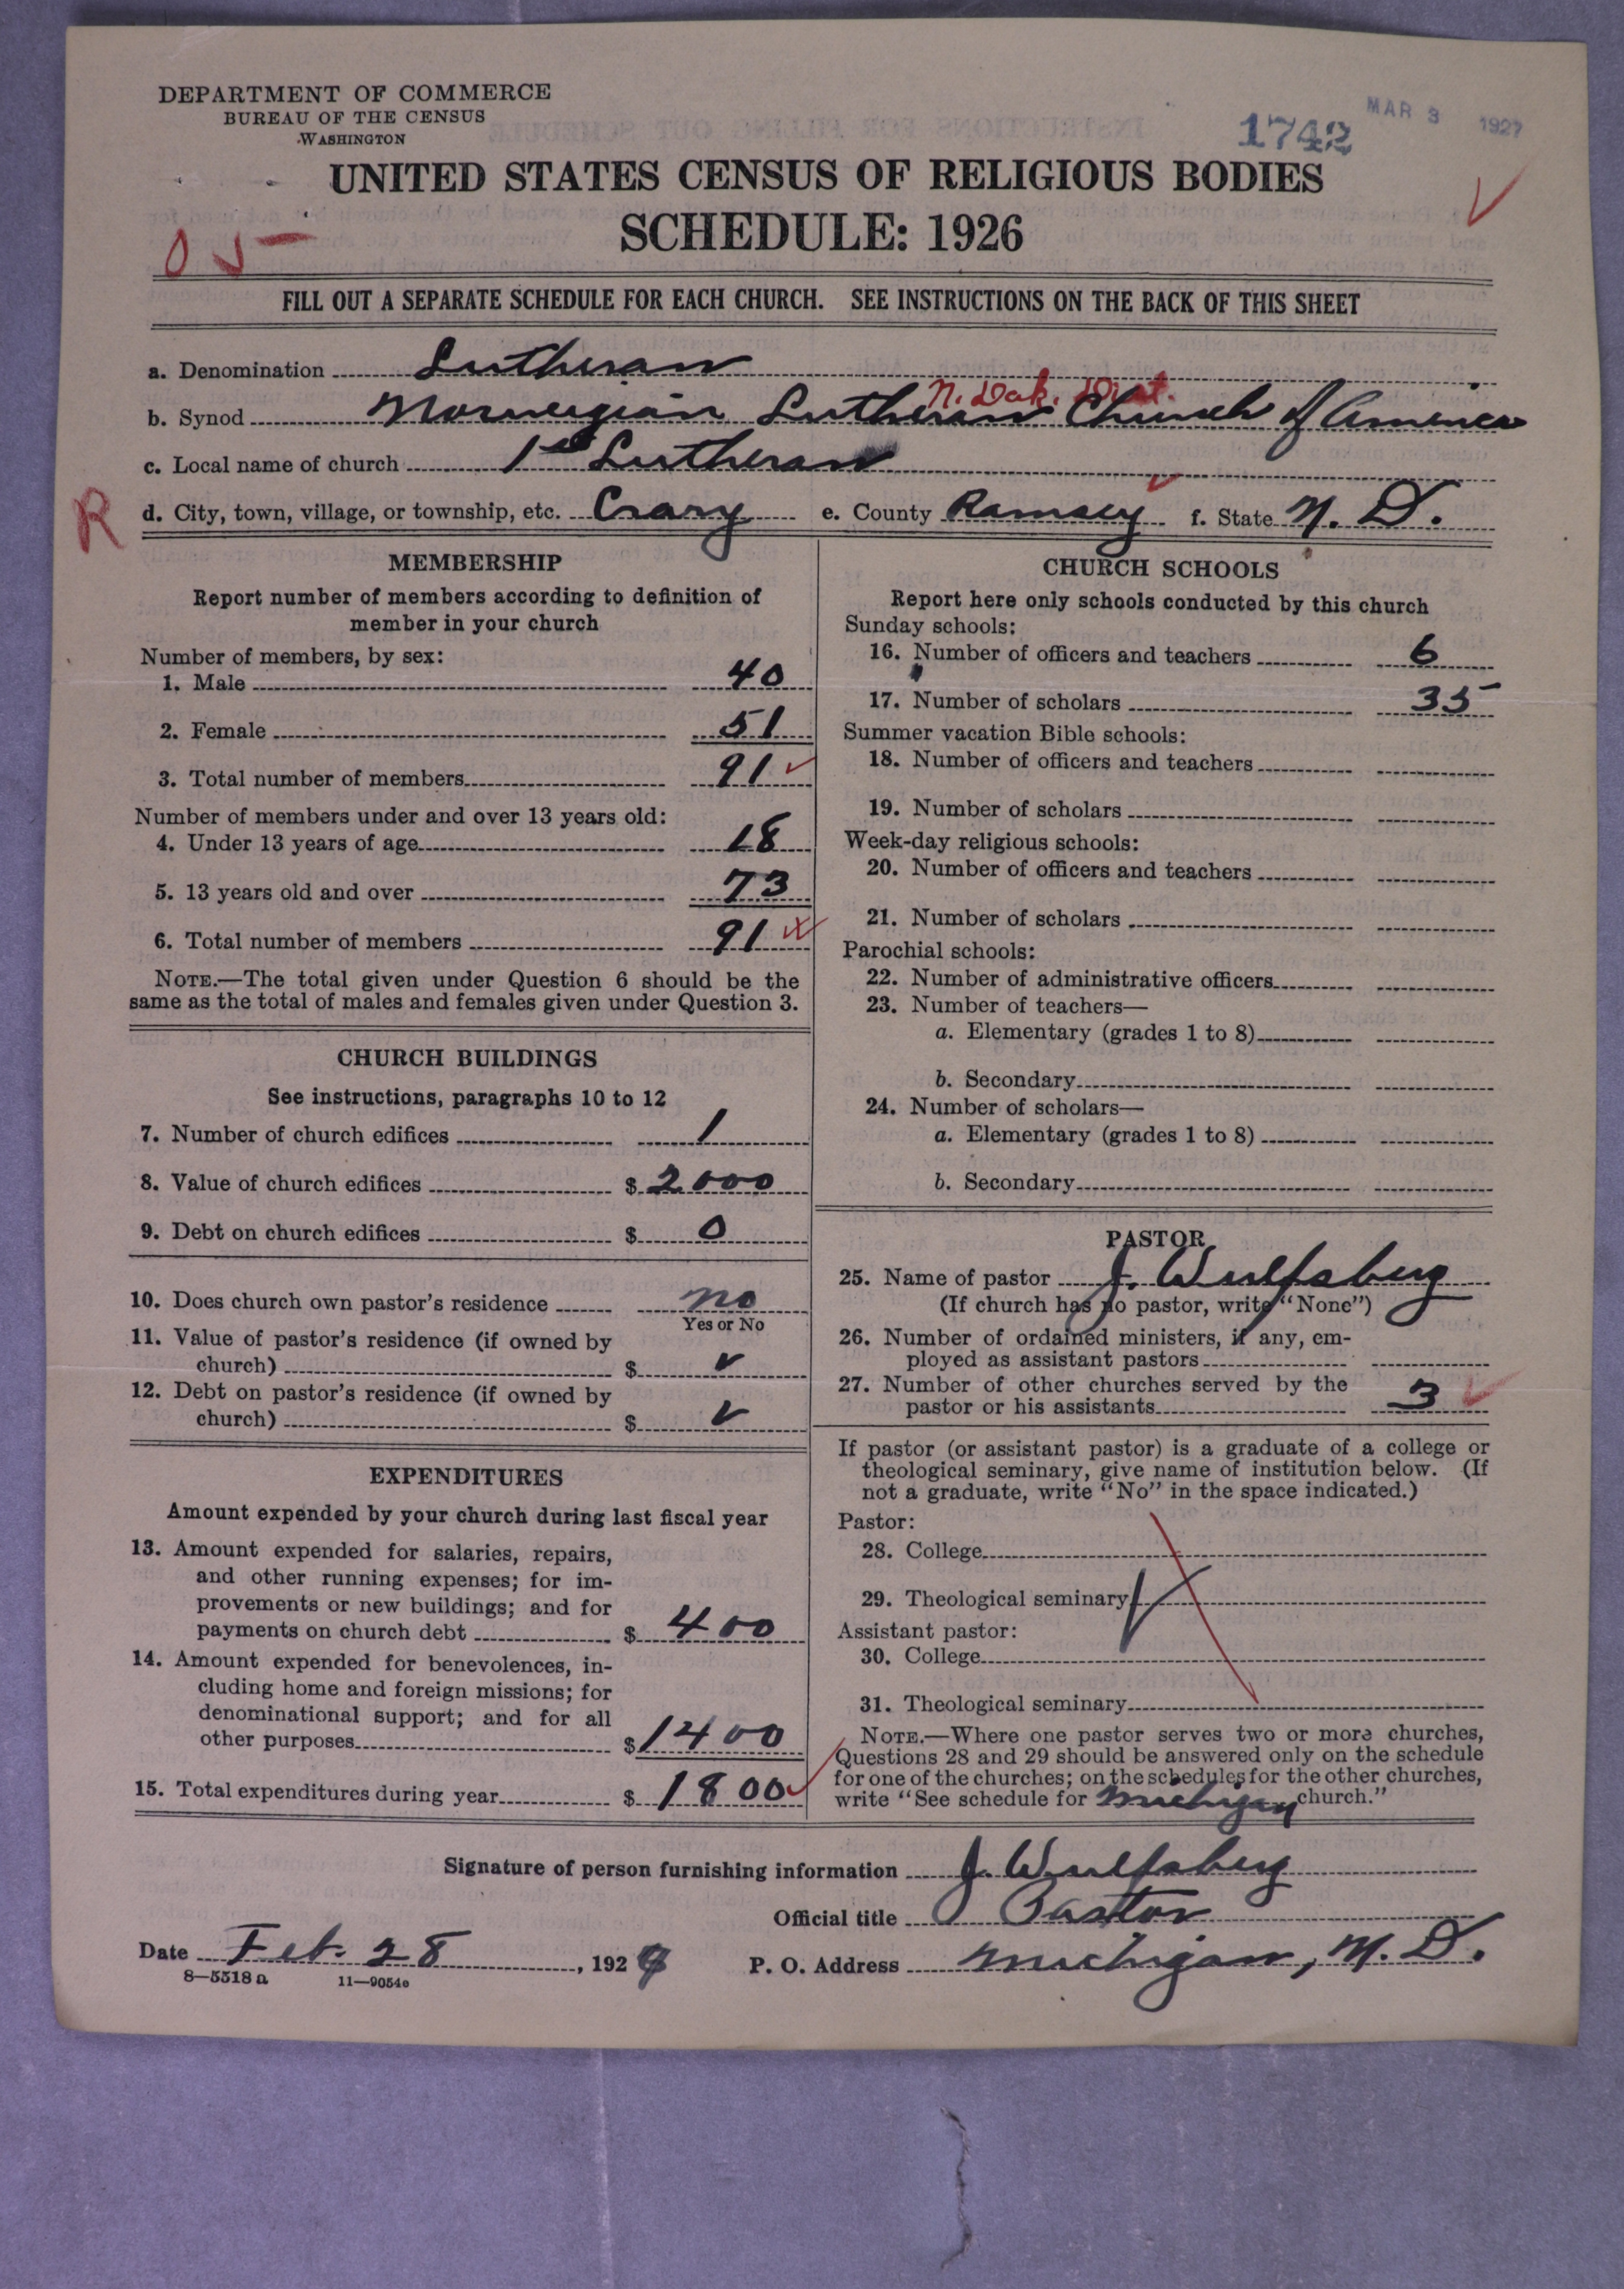 DEPARTMENT OF COMMERCE
BUREAU OF THE CENSUS
WASHINGTON
1742
MAR 3 1927
UNITED STATES CENSUS OF RELIGIOUS BODIES
SCHEDULE: 1926
FILL OUT A SEPARATE SCHEDULE FOR EACH CHURCH. SEE INSTRUCTIONS ON THE BACK OF THIS SHEET
a. Denomination Lutheran
N. Dak. Dist.
b. Synod Norwegian Lutheran Church of America
c. Local name of church 1st Lutheran
R
d. City, town, village, or township, etc. Crary e. County Ramsey f. State N. D.
MEMBERSHIP
Report number of members according to definition of
member in your church
Number of members, by sex:
1. Male 40
2. Female 51
3. Total number of members 91
Number of members under and over 13 years old:
4. Under 13 years of age 18
5. 13 years old and over 73
6. Total number of members 91
NOTE.—The total given under Question 6 should be the
same as the total of males and females given under Question 3.
CHURCH BUILDINGS
See instructions, paragraphs 10 to 12
7. Number of church edifices 1
8. Value of church edifices $ 2000
9. Debt on church edifices $ 0
10. Does church own pastor's residence no
Yes or No
11. Value of pastor's residence (if owned by
church) $
12. Debt on pastor's residence (if owned by
church) $
EXPENDITURES
Amount expended by your church during last fiscal year
13. Amount expended for salaries, repairs,
and other running expenses; for im-
provements or new buildings; and for
payments on church debt $ 400
14. Amount expended for benevolences, in-
cluding home and foreign missions; for
denominational support; and for all
other purposes $ 1400
15. Total expenditures during year $ 1800
CHURCH SCHOOLS
Report here only schools conducted by this church
Sunday schools:
16. Number of officers and teachers 6
17. Number of scholars 35
Summer vacation Bible schools:
18. Number of officers and teachers
19. Number of scholars
Week-day religious schools:
20. Number of officers and teachers
21. Number of scholars
Parochial schools:
22. Number of administrative officers
23. Number of teachers—
a. Elementary (grades 1 to 8)
b. Secondary
24. Number of scholars—
a. Elementary (grades 1 to 8)
b. Secondary
PASTOR
25. Name of pastor J. Wulfsberg
(If church has no pastor, write "None")
26. Number of ordained ministers, if any, em-
ployed as assistant pastors
27. Number of other churches served by the
pastor or his assistants 3
If pastor (or assistant pastor) is a graduate of a college or
theological seminary, give name of institution below. (If
not a graduate, write "No" in the space indicated.)
Pastor:
28. College
29. Theological seminary
Assistant pastor:
30. College
31. Theological seminary
NOTE.—Where one pastor serves two or more churches,
Questions 28 and 29 should be answered only on the schedule
for one of the churches; on the schedules for the other churches,
write "See schedule for Michigan church."
Signature of person furnishing information J. Wulfsberg
Official title Pastor
Date Feb. 28, 1927
P. O. Address Michigan, N. D.
8—5518 a 11—9054c